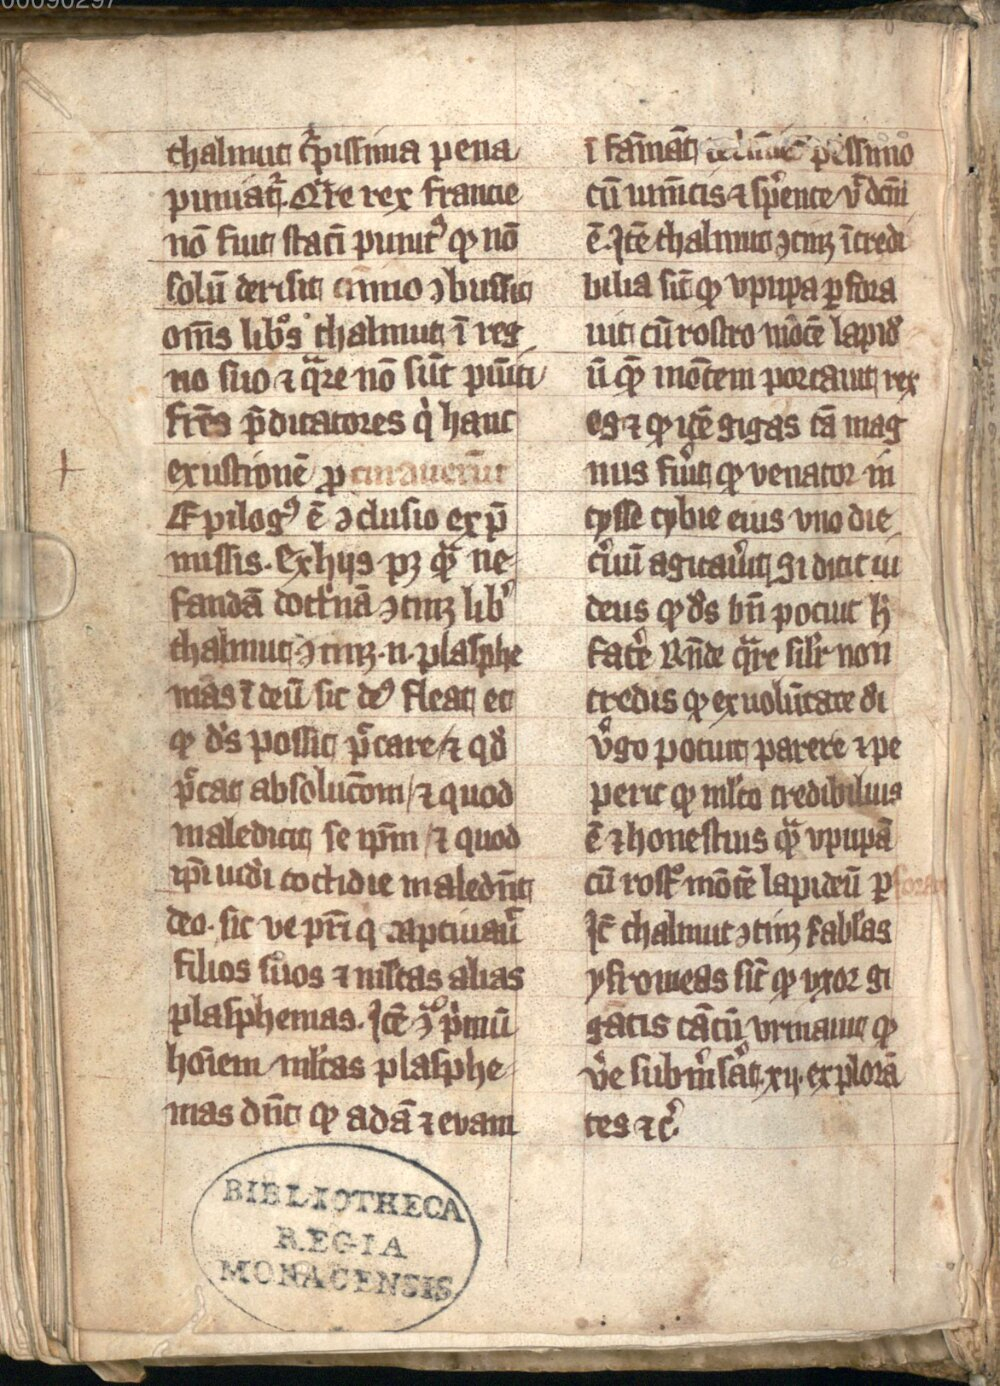 00090297
thalmut t᷑pissima pena
puniat᷑. Qr̄e rex francie
nō fuit statī punit᷒ ꝙ nō
solū derisit ↄbussit
om̄s libͦs thalmut ī reg
no suo ⁊ qͣre nō sūt pūiti
fr̄es p̄dicatores qͥ hanc
exustionē ꝓ
Epilog᷒ ē ↄclusio ex p̄
missis. Ex hijs pꝫ ꝙͣ ne
fandā doctͥnā ↄtinꝫ lib᷒
thalmut ↄtinꝫ .n. plasphe
mias ī deū sic de᷒ fleat et
ꝙ ds̄ possit pc̄care / ⁊ qđ
pc̄cat absolucōm / ⁊ quod
maledicit se ip̄m / ⁊ quod
ip̄i iudī cottidie maledn̄t
deo. sic ve pr̄i q captiuaū
filios suos ⁊ ml̄tas alias
plasphemas. Itē ↄͣ pͥmū
hoīem ml̄tas plasphe
mas dn̄t ꝙ adā ⁊ euam
ī famāt pessimo
cū ⁊ spͥente
ē. Itē thalmut ↄtinꝫ īcredi
bilia sīt ꝙ vpupa ꝑfora
uit cū rostro mōtē lapid
ū ꝙ mōtem portauit rex
og ⁊ ꝙ idē gigas tā mag
nus fuͥt ꝙ venator in
tysse tybie eius vno die
c̄uū agitauͥt Si dicit iu
deus ꝙ ds̄ bn̄ potuit h̄
facͥe Rn̄de qͣre sil̄r non
credis ꝙ ex uolūtate di
vͥgo potuit parere ⁊ pe
perit ꝙ ml̄to credibilius
ē ⁊ honestius ꝙͣ vpupā
cū rosͭ mōtē lapideū ꝑforar
Itē thalmut ↄtinꝫ fablas
yfroneas sīt ꝙ vxor gi
gātis tātū vrinauit ꝙ
vͥe subm̄sāt .xij. explorā
tes ⁊ cͥ
BIBLIOTHECA
REGIA
MONACENSIS